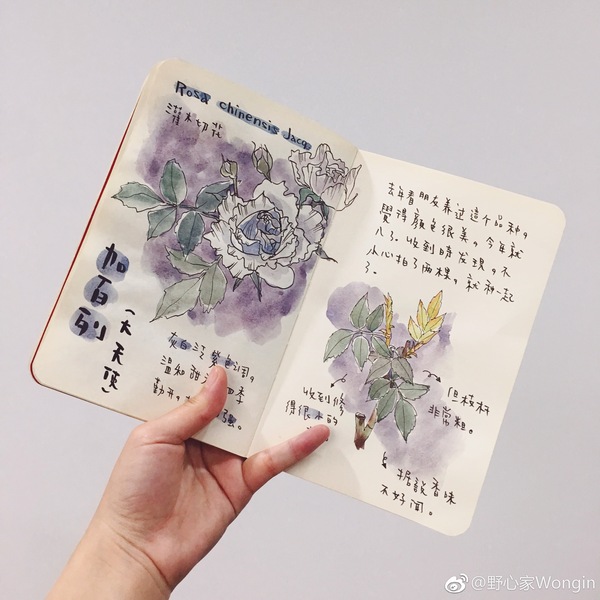 Rosa chinencis Jacq
灌木切花
加百列
(大天使)
灰白泛紫色调。
温和甜 四季
勤开。 强。
去年看朋友养过這个品种。
覺得颜色很美。今年就
入了。收到時发現，不
小心拍了两棵。就种一起
了。
收到修
得很 的
但枝杆
非常粗。
据說香味
不好闻。
@野心家Wongin